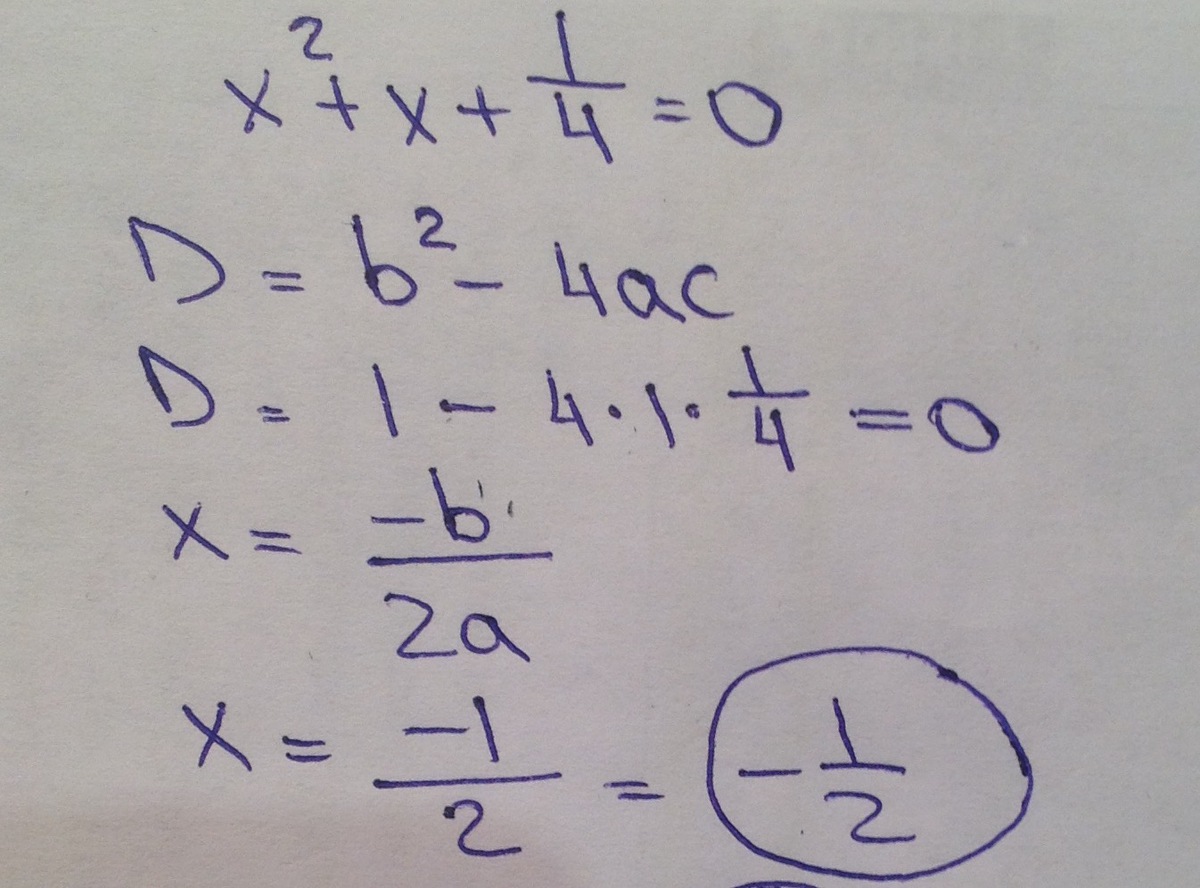 x² + x + 1/4 = 0
D = b² - 4ac
D = 1 - 4·1·1/4 = 0
x = -b/2a
x = -1/2 = -1/2